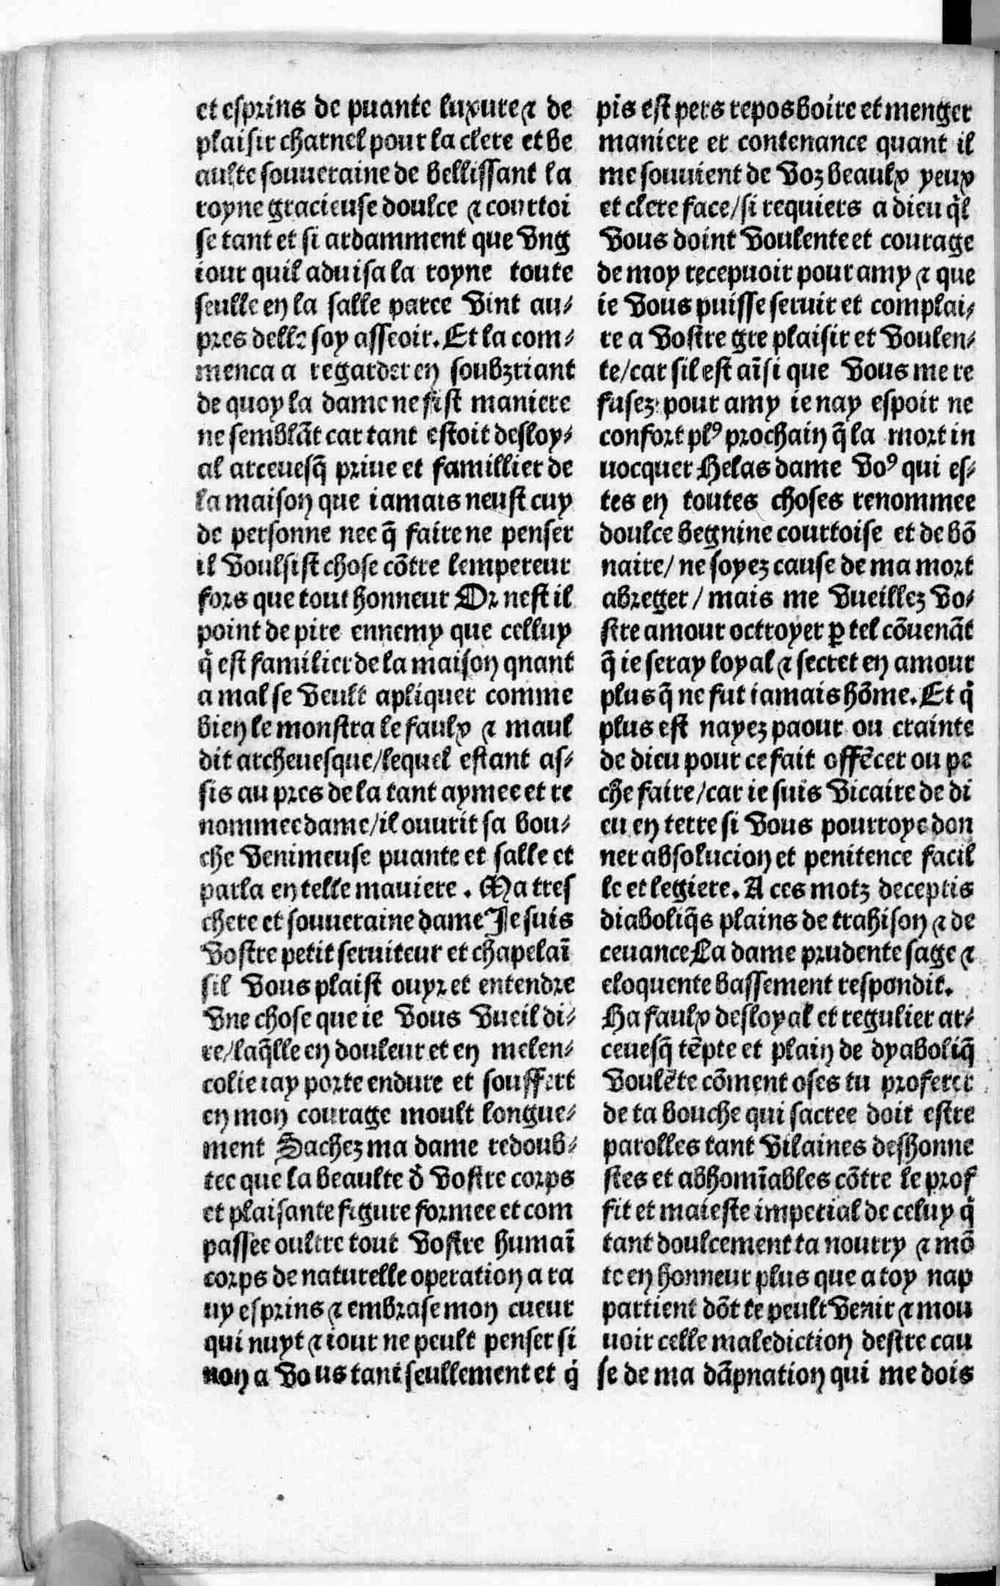 et esprins de puante luxure ⁊ de
plaisir charnel pour la clere et be
aulte souueraine de bellissant la
royne gracieuse doulce ⁊ courtoi
se tant et si ardamment que vng
iour quil aduisa la royne toute
seulle en la salle paree vint au⸗
pres delle soy asseoir. Et la com⸗
menca a regarder en soubzriant
de quoy la dame ne fist maniere
ne semblāt car tant estoit desloy⸗
al arceuesq̄ priue et famillier de
la maison que iamais neust cuy
de personne nee q̄ faire ne penser
il voulsist chose cōtre lempereur
fors que tout honneur Or nest il
point de pire ennemy que celluy
q̄ est familier de la maison qnant
a mal se veult apliquer comme
bien le monstra le faulx ⁊ maul
dit archeuesque/lequel estant as⸗
sis au pres de la tant aymee et re
nommee dame/il ouurit sa bou⸗
che venimeuse puante et salle et
parla en telle mauiere. Ma tres
chere et souueraine dame Je suis
vostre petit seruiteur et chapelaī
sil vous plaist ouyr et entendre
vne chose que ie vous vueil di⸗
re/laq̄lle en douleur et en melen⸗
colie iay porte endure et souffert
en mon courage moult longue⸗
ment Sachez ma dame redoub⸗
tee que la beaulte d̄ vostre corps
et plaisante figure formee et com
passee oultre tout vostre humaī
corps de naturelle operation a ra
uy esprins ⁊ embrase mon cueur
qui nuyt ⁊ iour ne peult penser si
non a vous tant seullement et q̄
pis est pers repos boire et menger
maniere et contenance quant il
me souuient de voz beaulx yeux
et clere face/si requiers a dieu q̄l
vous doint voulente et courage
de moy recepuoir pour amy ⁊ que
ie vous puisse seruir et complai⸗
re a vostre gre plaisir et voulen⸗
te/car sil est aīsi que vous me re
fusez pour amy ie nay espoir ne
confort plꝰ prochain q̄ la mort in
uocquer Helas dame voꝰ qui es⸗
tes en toutes choses renommee
doulce begnine courtoise et de bō
naire/ne soyez cause de ma mort
abreger/mais me vueillez vo⸗
stre amour octroyer ꝑ tel cōuenāt
q̄ ie seray loyal ⁊ secret en amour
plus q̄ ne fut iamais hōme. Et q̄
plus est nayez paour ou crainte
de dieu pour ce fait offēcer ou pe
che faire/car ie suis vicaire de di
eu en terre si vous pourroye don
ner absolucion et penitence facil
le et legiere. A ces motz deceptis
diaboliq̄s plains de trahison ⁊ de
ceuance La dame prudente sage ⁊
eloquente bassement respondit.
Ha faulx desloyal et regulier ar⸗
ceuesq̄ tēpte et plain de dyaboliq̄
voulēte cōment oses tu proferer
de ta bouche qui sacree doit estre
parolles tant vilaines deshonne
stes et abhomīables cōtre le prof
fit et maieste imperial de celuy q̄
tant doulcement ta nourry ⁊ mō
te en honneur plus que a toy nap
partient dōt te peult venir ⁊ mou
uoir celle malediction destre cau
se de ma dāpnation qui me dois